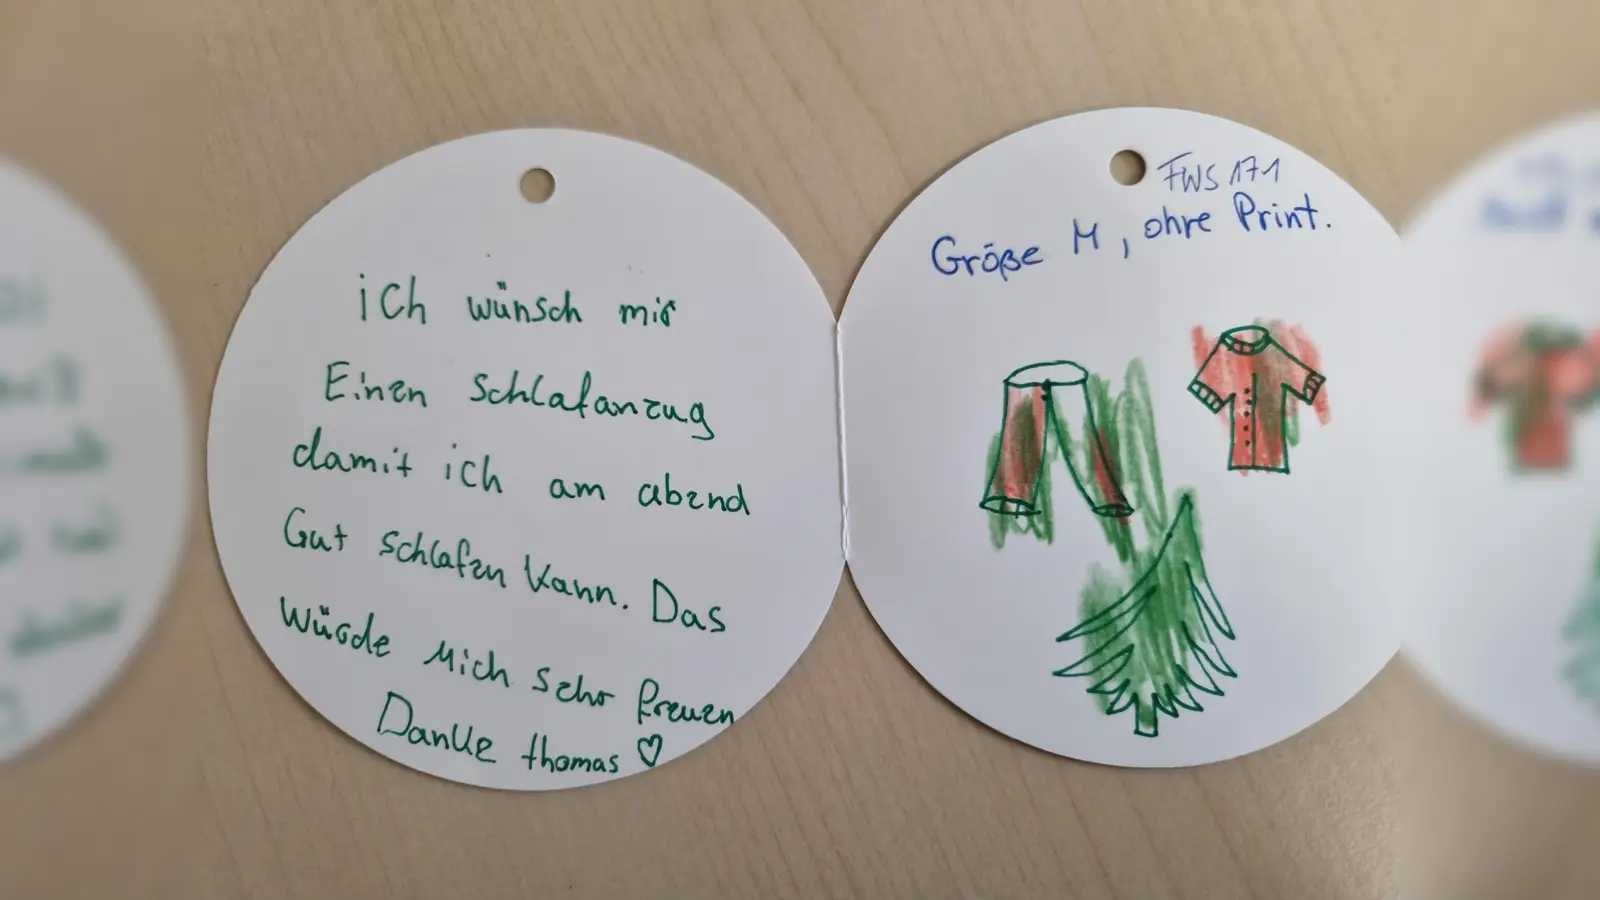 ich wünsch mir
Einen Schlafanzug
damit ich am abend
Gut schlafen kann. Das
würde Mich sehr freuen
Danke thomas ♡
FWS 171
Größe M, ohne Print.